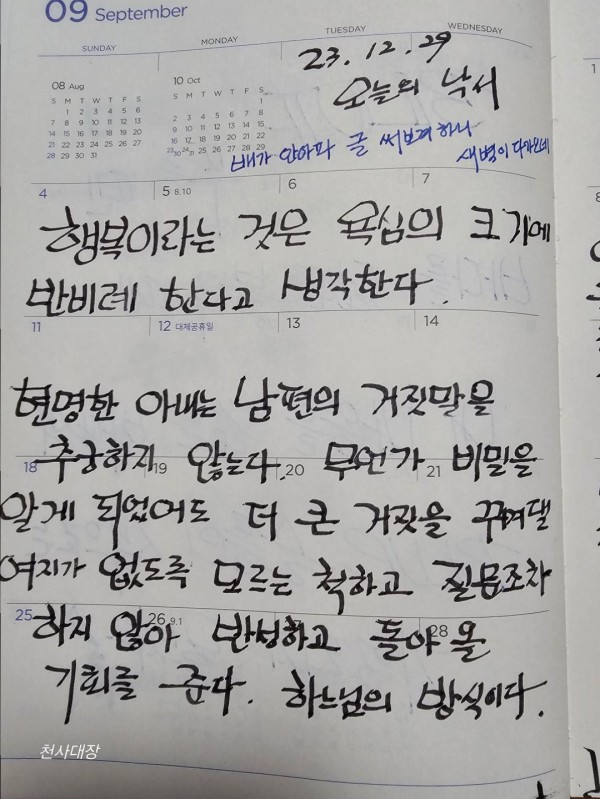 09 September
SUNDAY MONDAY TUESDAY WEDNESDAY
23. 12. 29
오늘의 낙서
08 Aug
S M T W T F S
1 2 3 4 5 6
7 8 9 10 11 12 13
14 15 16 17 18 19 20
21 22 23 24 25 26 27
28 29 30 31
10 Oct
S M T W T F S
1
2 3 4 5 6 7 8
9 10 11 12 13 14 15
16 17 18 19 20 21 22
23/30 24/31 25 26 27 28 29
배가 안아파 글 써보려 하니
새벽이 다가오네
4 5 8.10 6 7
행복이라는 것은 욕심의 크기에
반비례 한다고 생각한다.
11 12 대체공휴일 13 14
현명한 아내는 남편의 거짓말을
추궁하지 않는다. 무언가 비밀을
18 19 20 21
알게 되었어도 더 큰 거짓을 꾸며댈
여지가 없도록 모르는 척하고 질문조차
25 26 9.1 28
하지 않아 반성하고 돌아올
기회를 준다. 하느님의 방식이다.
천사대장